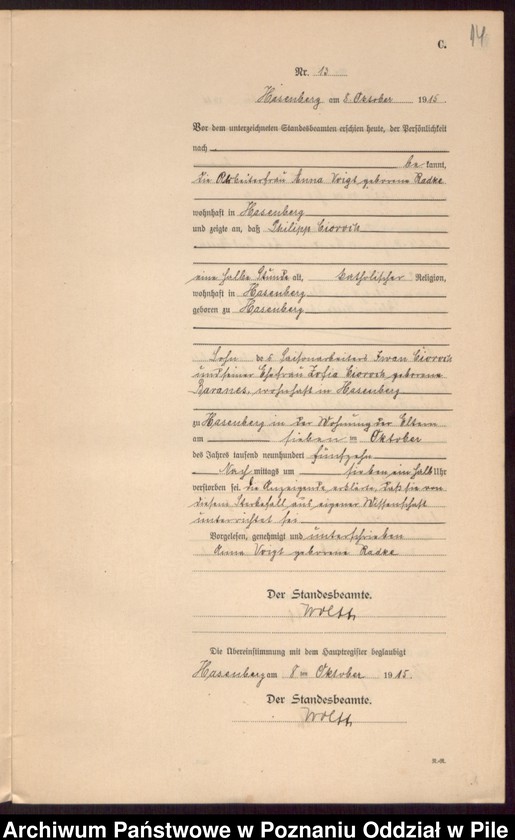 14
C.
Nr. 13
Hasenberg am 8. Oktober 1915.
Vor dem unterzeichneten Standesbeamten erschien heute, der Persönlichkeit
nach
be kannt,
die Arbeiterfrau Anna Voigt geborene Radke
wohnhaft in Hasenberg
und zeigte an, daß Philipp Ciorock
eine halbe Stunde alt, katholischer Religion,
wohnhaft in Hasenberg
geboren zu Hasenberg
Sohn des Saisonarbeiters Iwan Ciorock
und seiner Ehefrau Zofia Ciorock geborene
Baranes, wohnhaft in Hasenberg
zu Hasenberg in der Wohnung der Eltern
am sieben ten Oktober
des Jahres tausend neunhundert fünfzehn
Nach mittags um sieben ein halb Uhr
verstorben sei. Die Anzeigende erklärte, daß sie von
diesem Sterbefall aus eigener Wissenschaft
unterrichtet sei.
Vorgelesen, genehmigt und unterschrieben
Anna Voigt geborene Radke
Der Standesbeamte.
Die Übereinstimmung mit dem Hauptregister beglaubigt
Hasenberg am 8 ten Oktober 1915.
Der Standesbeamte.
Archiwum Państwowe w Poznaniu Oddział w Pile